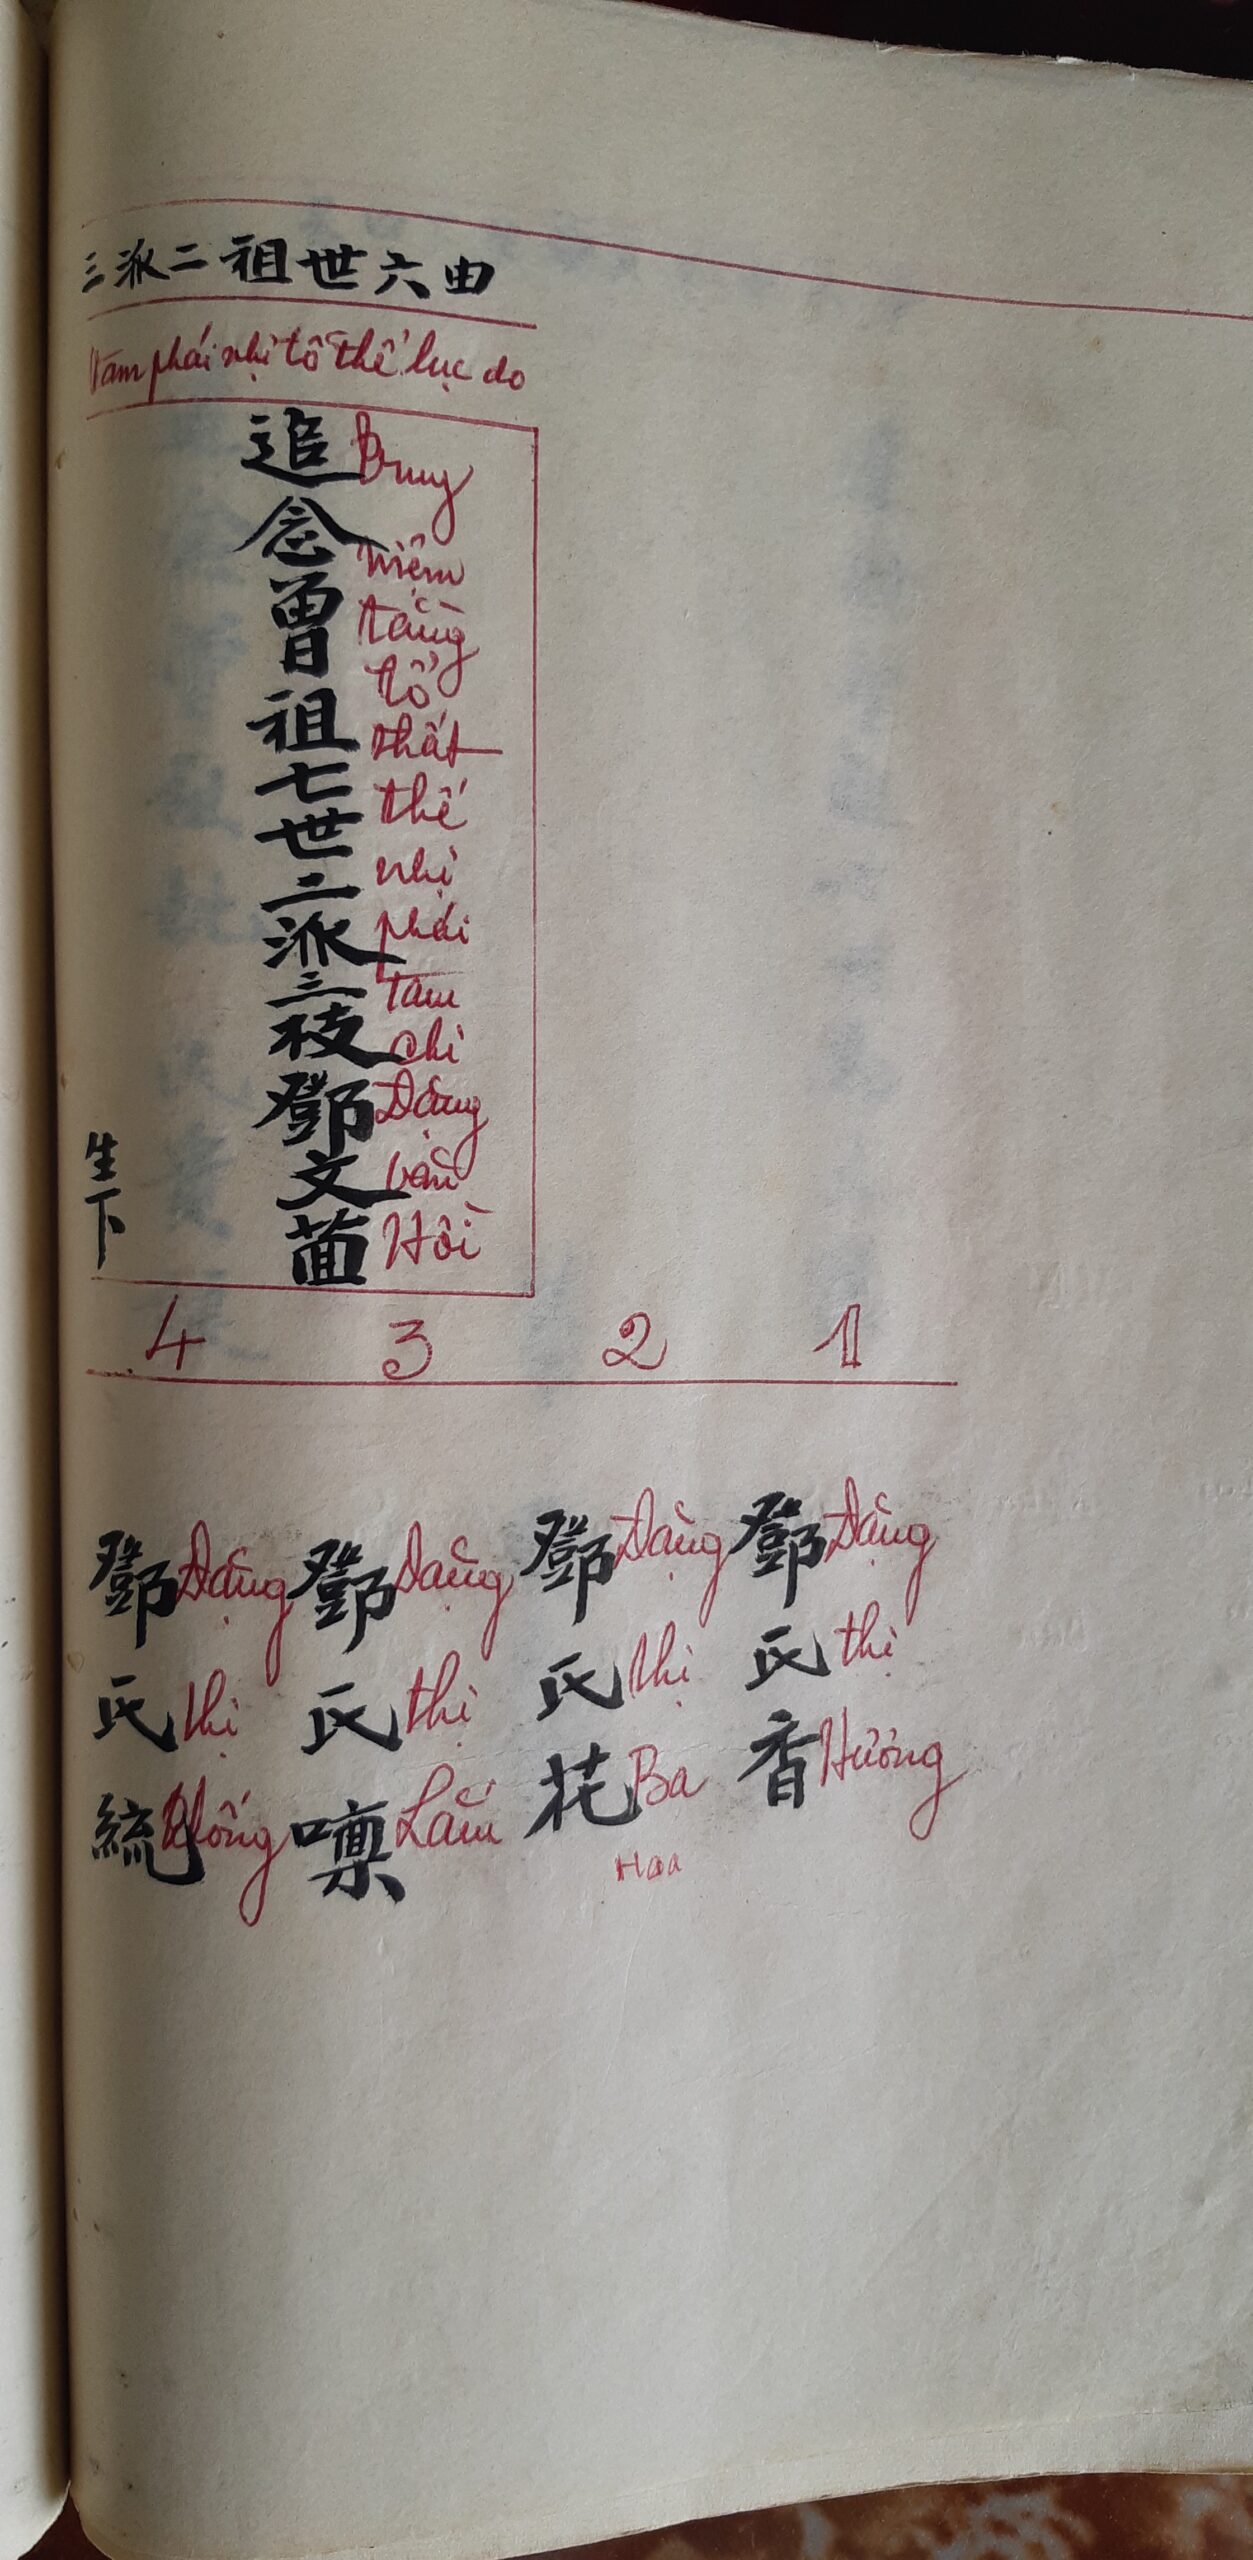 三派二祖世六由
Tam phái nhị tổ thế lục do
追念曾祖七世二派三枝鄧文葍
Bruy niệm tằng tổ thất thế nhị phái tam chi Đặng văn Hồi
生下
4 3 2 1
鄧氏香
Đặng thị Hương
鄧氏花
Đặng thị Ba
Hoa
鄧氏㗚
Đặng thị Lẫm
鄧氏統
Đặng thị Thống